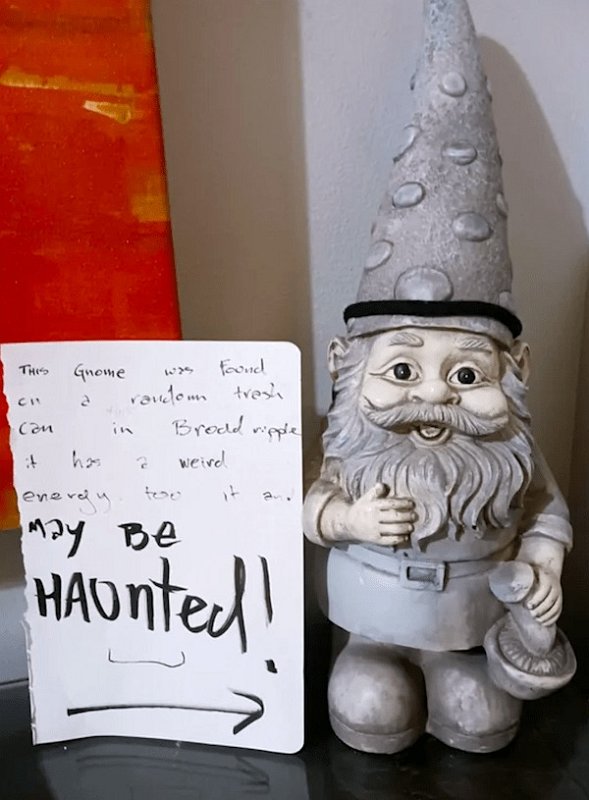 THIS Gnome was Found
on a random trash
can in Broad ripple
it has a weird
energy too it and
MAY BE
HAUnted!